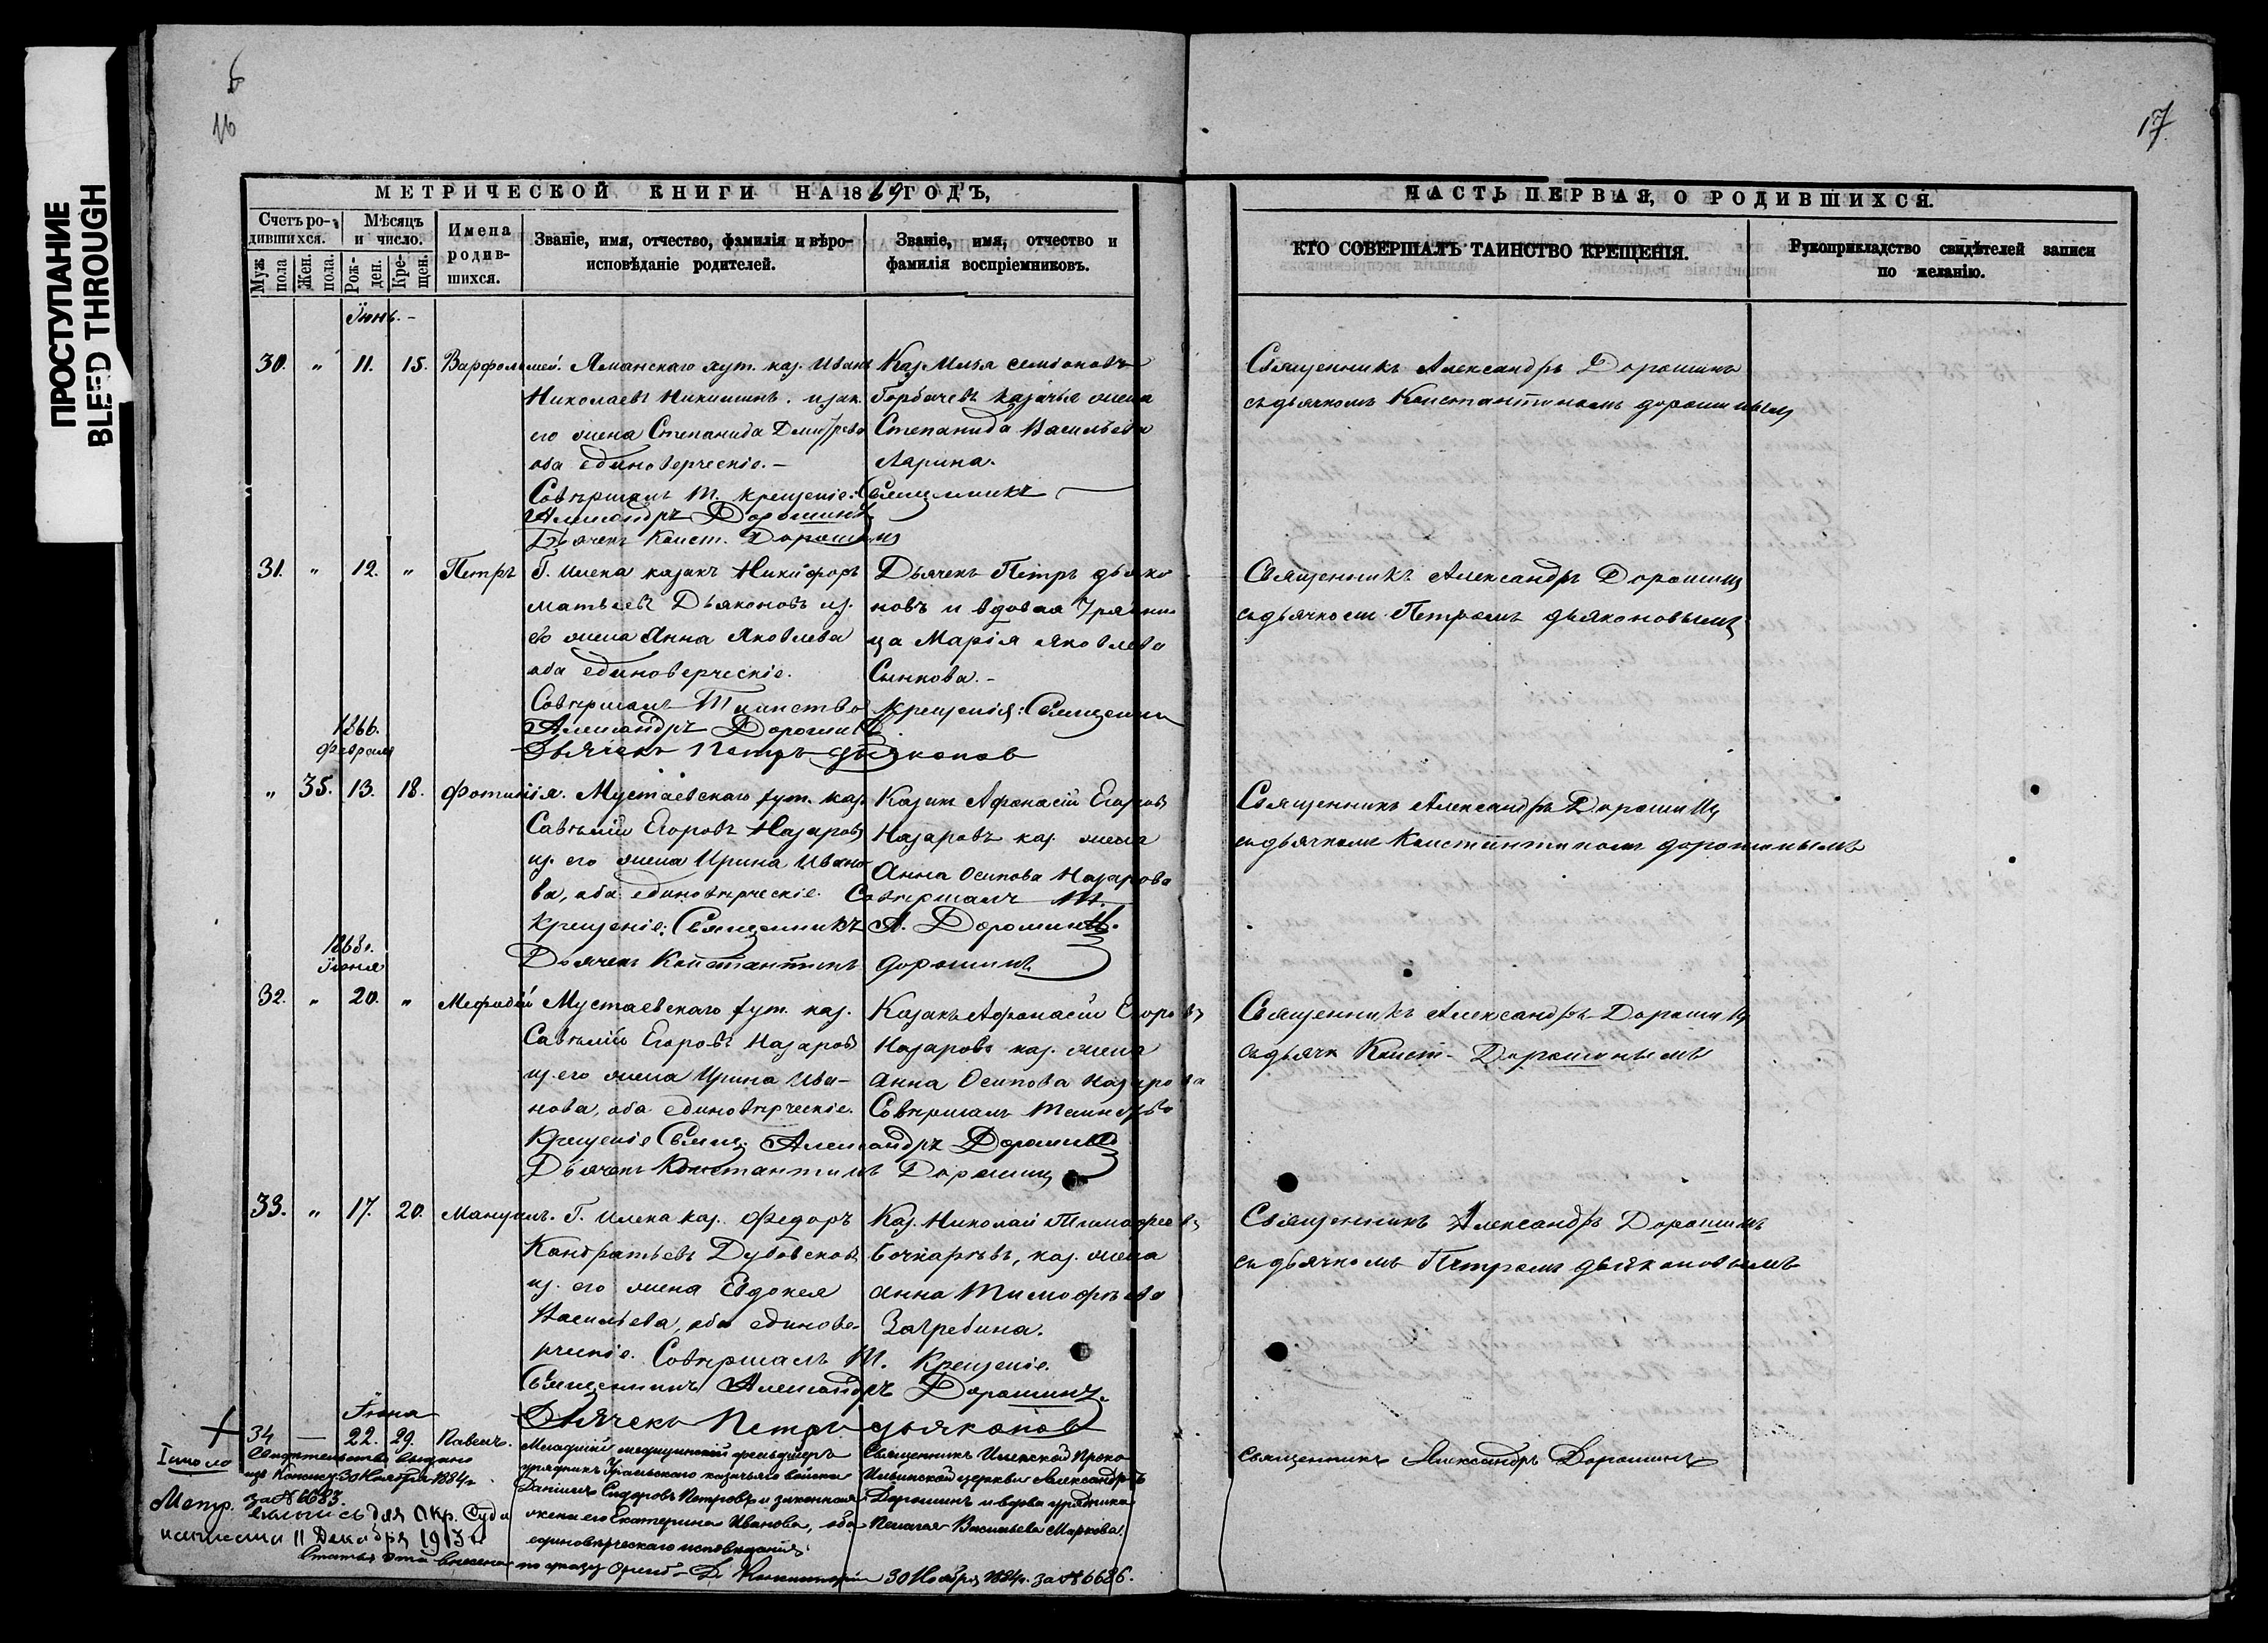 ПРОСТУПАНИЕ
BLEED THROUGH
6
16
17
МЕТРИЧЕСКОЙ КНИГИ НА 1869 ГОДЪ,
Счетъ ро-
дившихся.
Мѣсяцъ
и число.
Имена
родив-
шихся.
Званіе, имя, отчество, фамилія и вѣро-
исповѣданіе родителей.
Званіе, имя, отчество и
фамилія воспріемниковъ.
Муж.
пола
Жен.
пола.
Рож-
ден.
Кре-
щен.
ЧАСТЬ ПЕРВАЯ, О РОДИВШИХСЯ.
КТО СОВЕРШАЛЪ ТАИНСТВО КРЕЩЕНІЯ.
Рукоприкладство свидѣтелей записи
по желанію.
Іюнь.-
30. " 11. 15. Варфоломей. Яманскаго хут. каз. Иванъ Каз. Илья Семіоновъ
Николаевъ Никишинъ. и зак. Горбачевъ казачья жена
его жена Степанида Дмитрева Степанида Васильева
оба единоверческіе.- Ларина.
Совершалъ Т. крещеніе: Священникъ
Александръ Дорошинъ
Дьячекъ Конст. Дорошинъ
Священникъ Александръ Дорошинъ
съ дьячкомъ Константиномъ Дорошинымъ
31. " 12. " Петръ Г. Илека казакъ Никифоръ Дьячекъ Петръ Дьяко
Матвѣевъ Дьяконовъ из. новъ и вдовая Урядни
его жена Анна Яковлева ца Марія Яковлева
оба единоверческіе. Сынкова.-
Совершалъ Таинство крещенія: Священни
Александръ Дорошинъ
Дьячекъ Петръ Дьяконов
Священникъ Александръ Дорошинъ
съ дьячкомъ Петромъ Дьяконовымъ
1866.
Февраля
" 35. 13. 18. Фотинія. Мустаевскаго хут. каз. Казакъ Афонасій Егоровъ
Савелій Егоровъ Назаровъ Назаровъ каз. жена
из. его жена Ирина Ивано Анна Осипова Назарова
ва, оба единоверческіе. Совершалъ Т.
Крещеніе: Священникъ А. Дорошинъ.
Дьячекъ Константинъ Дорошинъ
Священникъ Александръ Дорошинъ
съ дьячкомъ Константиномъ Дорошинымъ
1868г.
Іюня
32. " 20. " Мефодій Мустаевскаго хут. каз. Казакъ Афонасій Егоровъ
Савелій Егоровъ Назаровъ Назаровъ каз. жена
из. его жена Ирина Ива- Анна Осипова Назарова
нова, оба единоверческіе. Совершалъ Таинство
Крещеніе Священ. Александръ Дорошинъ
Дьячекъ Константинъ Дорошинъ
Священникъ Александръ Дорошинъ
съ дьячк Конст- Дорошинымъ
33. " 17. 20. Мануилъ. Г. Илека каз. Федоръ Каз. Николай Тимофеевъ
Кондратьевъ Дубовсковъ Бочкаревъ, каз. жена
из. его жена Евдокея Анна Тимофѣева
Васильева, оба единове- Загребина.
рческіе. Совершалъ Т. Крещеніе.
Священникъ Александръ Дорошинъ.
Дьячекъ Петръ Дьяконов
Священникъ Александръ Дорошинъ
съ дьячкомъ Петромъ Дьяконовымъ
Іюня
34 — 22. 29. Павелъ. Младшій медицинскій фельдшеръ Священникъ Илекской Проко
урядникъ Уральскаго казачьяго войска Ильинской церкви Александръ
Даніилъ Сидоровъ Петровъ и законная Дорошинъ и вдова урядника
жена его Екатерина Иванова, оба Пелагея Васильева Маркова.
единоверческаго исповеданія
священникъ Александръ Дорошинъ
Свидетельство выдано
изъ Консист. 30 Ноября 1884г.
за № 6683.
Метр. выпись для Окр. Суда
11 Декабря 1913 г.
Статья эта внесена по указу Оренб- Д. Консисторіи 30 Ноября 1884г. за № 6686.